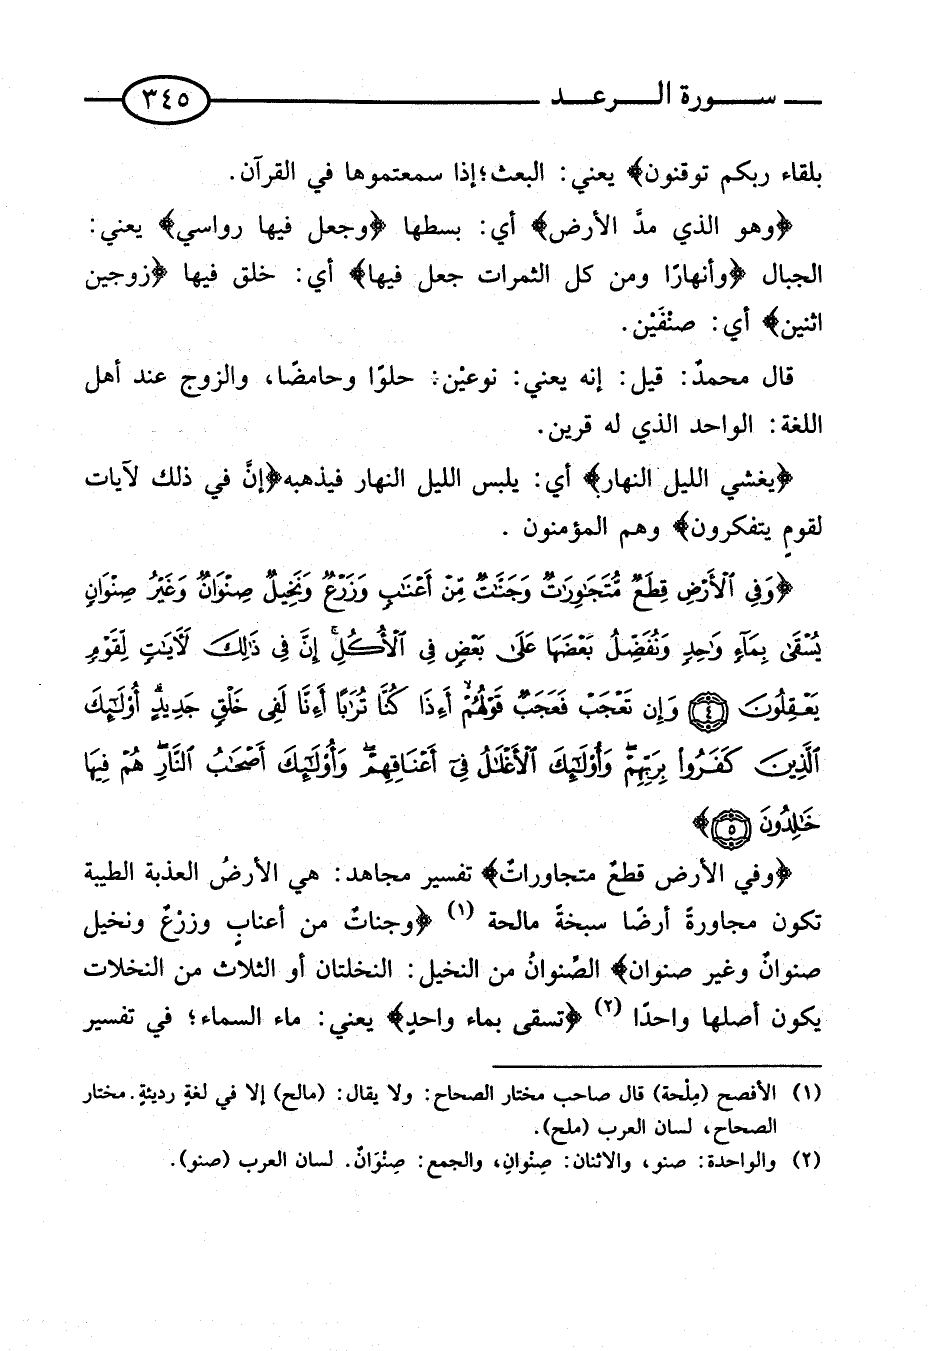 سورة الرعد ٣٤٥
بلقاء ربكم توقنون﴾ يعني: البعث؛إذا سمعتموها في القرآن.
﴿وهو الذي مدَّ الأرض﴾ أي: بسطها ﴿وجعل فيها رواسي﴾ يعني:
الجبال ﴿وأنهارًا ومن كل الثمرات جعل فيها﴾ أي: خلق فيها ﴿زوجين
اثنين﴾ أي: صنْفَيْن.
قال محمدٌ: قيل: إنه يعني: نوعيْن: حلوًا وحامضًا، والزوج عند أهل
اللغة: الواحد الذي له قرين.
﴿يغشي الليل النهار﴾ أي: يلبس الليل النهار فيذهبه﴿إنَّ في ذلك لآيات
لقومٍ يتفكرون﴾ وهم المؤمنون .
﴿وَفِي ٱلْأَرْضِ قِطَعٌ مُّتَجَٰوِرَٰتٌ وَجَنَّٰتٌ مِّنْ أَعْنَٰبٍ وَزَرْعٌ وَنَخِيلٌ صِنْوَانٌ وَغَيْرُ صِنْوَانٍ
يُسْقَىٰ بِمَآءٍ وَٰحِدٍ وَنُفَضِّلُ بَعْضَهَا عَلَىٰ بَعْضٍ فِي ٱلْأُكُلِۚ إِنَّ فِي ذَٰلِكَ لَآيَٰتٍ لِّقَوْمٍ
يَعْقِلُونَ ٤ وَإِن تَعْجَبْ فَعَجَبٌ قَوْلُهُمْ أَءِذَا كُنَّا تُرَٰبًا أَءِنَّا لَفِي خَلْقٍ جَدِيدٍۗ أُو۟لَٰٓئِكَ
ٱلَّذِينَ كَفَرُوا۟ بِرَبِّهِمْۖ وَأُو۟لَٰٓئِكَ ٱلْأَغْلَٰلُ فِيٓ أَعْنَاقِهِمْۖ وَأُو۟لَٰٓئِكَ أَصْحَٰبُ ٱلنَّارِۖ هُمْ فِيهَا
خَٰلِدُونَ ٥﴾
﴿وفي الأرض قطعٌ متجاوراتٌ﴾ تفسير مجاهد: هي الأرضُ العذبة الطيبة
تكون مجاورةً أرضًا سبخةً مالحة (١) ﴿وجناتٌ من أعنابٍ وزرْعٌ ونخيل
صنوانٌ وغير صنوان﴾ الصِّنوانُ من النخيل: النخلتان أو الثلاث من النخلات
يكون أصلها واحدًا (٢) ﴿تسقى بماء واحدٍ﴾ يعني: ماء السماء؛ في تفسير
(١) الأفصح (مِلْحة) قال صاحب مختار الصحاح: ولا يقال: (مالح) إلا في لغةٍ رديئةٍ.مختار
الصحاح، لسان العرب (ملح).
(٢) والواحدة: صنو، والاثنان: صِنْوانِ، والجمع: صِنْوَانٌ. لسان العرب (صنو).